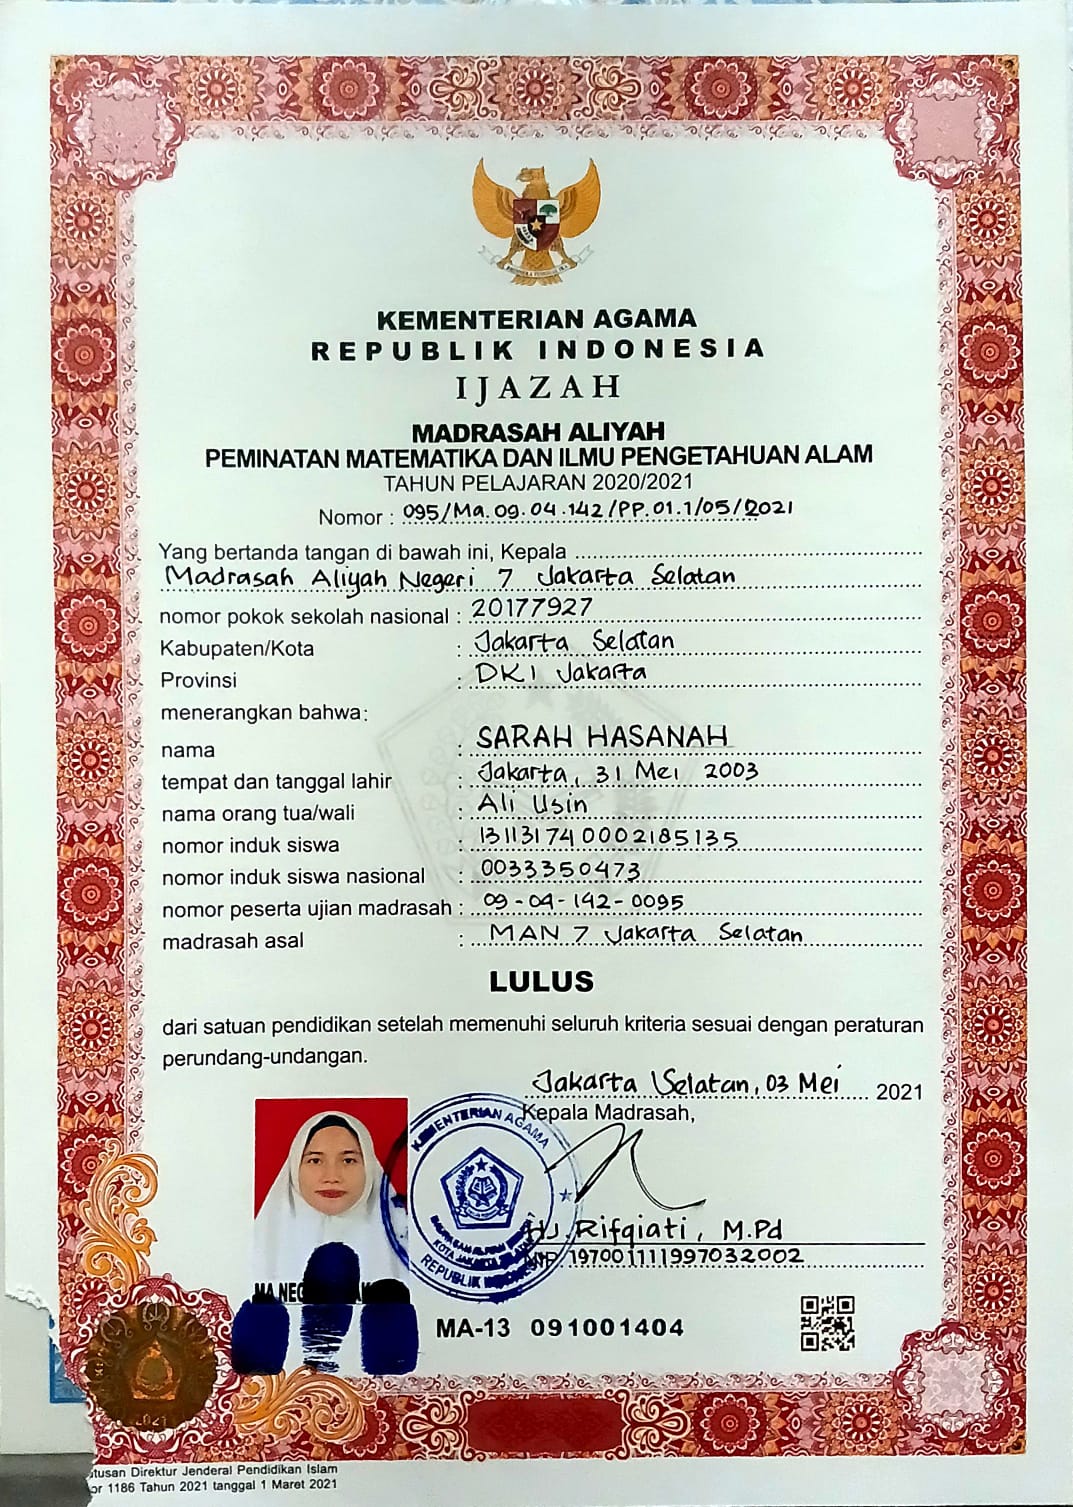 KEMENTERIAN AGAMA
REPUBLIK INDONESIA
IJAZAH
MADRASAH ALIYAH
PEMINATAN MATEMATIKA DAN ILMU PENGETAHUAN ALAM
TAHUN PELAJARAN 2020/2021
Nomor : 095/Ma.09.04.142/PP.01.1/05/2021
Yang bertanda tangan di bawah ini, Kepala
Madrasah Aliyah Negeri 7 Jakarta Selatan
nomor pokok sekolah nasional : 20177927
Kabupaten/Kota : Jakarta Selatan
Provinsi : DKI Jakarta
menerangkan bahwa:
nama : SARAH HASANAH
tempat dan tanggal lahir : Jakarta, 31 Mei 2003
nama orang tua/wali : Ali Usin
nomor induk siswa : 131131740002185135
nomor induk siswa nasional : 0033350473
nomor peserta ujian madrasah : 09-04-142-0095
madrasah asal : MAN 7 Jakarta Selatan
LULUS
dari satuan pendidikan setelah memenuhi seluruh kriteria sesuai dengan peraturan
perundang-undangan.
Jakarta Selatan, 03 Mei 2021
Kepala Madrasah,
KEMENTERIAN AGAMA
KOTA JAKARTA
REPUBLIK
Hj. Rifqiati, M.Pd
NIP. 197001111997032002
MA NEG
MA-13 091001404
2021
tusan Direktur Jenderal Pendidikan Islam
or 1186 Tahun 2021 tanggal 1 Maret 2021